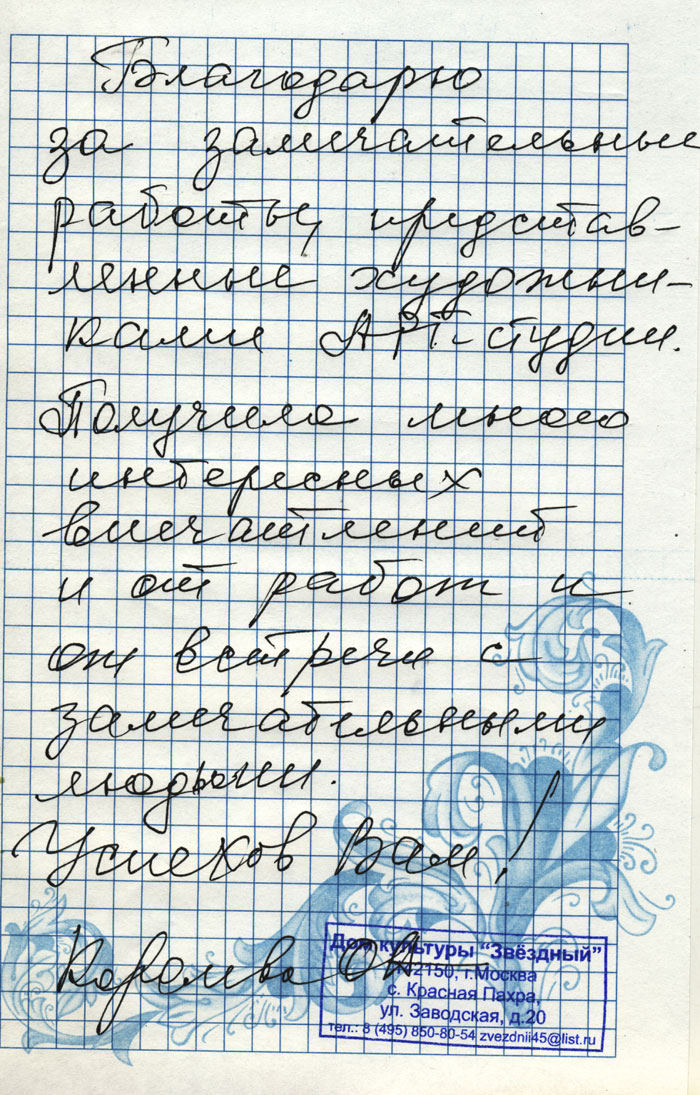 Благодарю
за замечательные
работы, представ-
ленные художни-
ками АРТ-студии.
Получила много
интересных
впечатлений
и от работ и
от встречи с
замечательными
людьми.
Успехов Вам!
Королева ОА
Дом культуры "Звёздный"
142150, г.Москва
с. Красная Пахра,
ул. Заводская, д.20
тел.: 8 (495) 850-80-54 zvezdnii45@list.ru